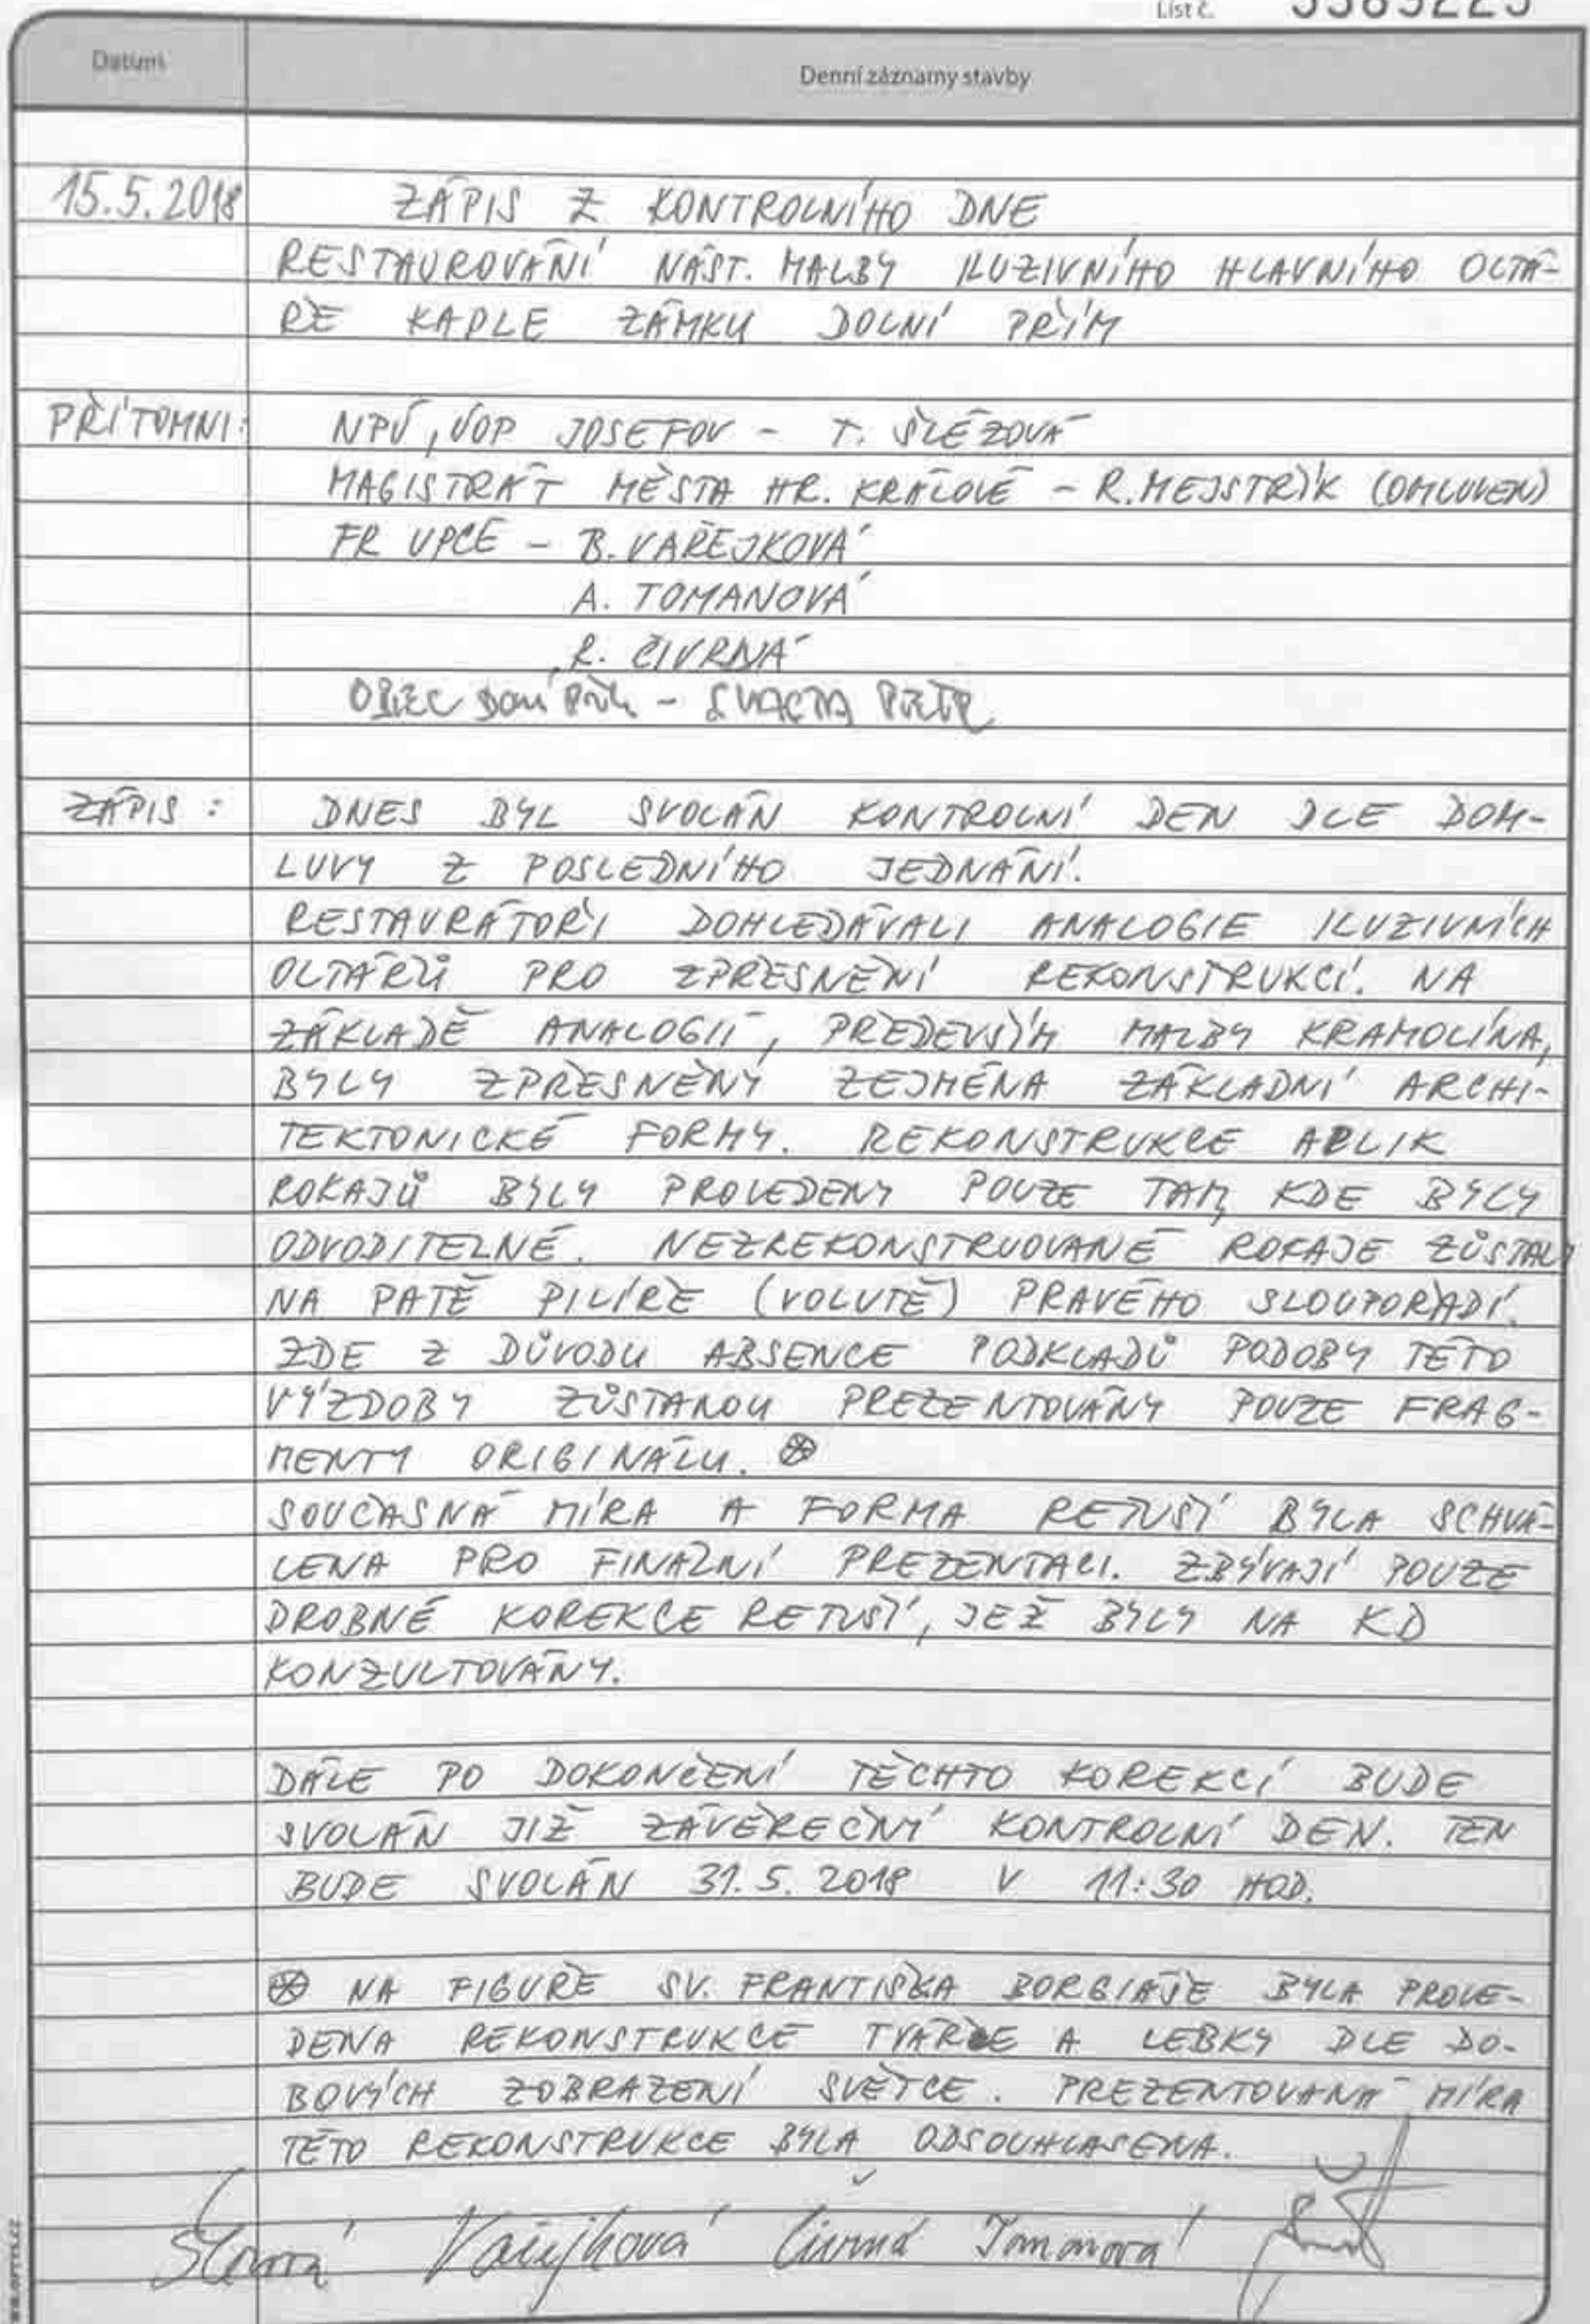 List č.
Datum
Denní záznamy stavby
15.5.2018 ZÁPIS Z KONTROLNÍHO DNE
RESTAUROVÁNÍ NÁST. MALBY ILUZIVNÍHO HLAVNÍHO OLTÁ-
ŘE KAPLE ZÁMKU DOLNÍ PŘÍM
PŘÍTOMNI: NPÚ, ÚOP JOSEFOV - T. ŠLÉZOVÁ
MAGISTRÁT MĚSTA HR. KRÁLOVÉ - R. MEJSTŘÍK (OMLUVEN)
FR UPCE - B. VAŘEJKOVÁ
A. TOMANOVÁ
R. ČIVRNÁ
OBEC - PETR
ZÁPIS: DNES BYL SVOLÁN KONTROLNÍ DEN DLE DOM-
LUVY Z POSLEDNÍHO JEDNÁNÍ.
RESTAURÁTOŘI DOHLEDÁVALI ANALOGIE ILUZIVNÍCH
OLTÁŘŮ PRO ZPŘESNĚNÍ REKONSTRUKCÍ. NA
ZÁKLADĚ ANALOGIÍ, PŘEDEVŠÍM MALBY KRAMOLÍNA,
BYLY ZPŘESNĚNY ZEJMÉNA ZÁKLADNÍ ARCHI-
TEKTONICKÉ FORMY. REKONSTRUKCE APLIK
ROKAJŮ BYLY PROVEDENY POUZE TAM, KDE BYLY
ODVODITELNÉ. NEZREKONSTRUOVANÉ ROKAJE ZŮSTALY
NA PATĚ PILÍŘE (VOLUTĚ) PRAVÉHO SLOUPOŘADÍ.
ZDE Z DŮVODU ABSENCE PODKLADŮ PODOBY TÉTO
VÝZDOBY ZŮSTANOU PREZENTOVÁNY POUZE FRAG-
MENTY ORIGINÁLU. ⊗
SOUČASNÁ MÍRA A FORMA RETUŠÍ BYLA SCHVÁ-
LENA PRO FINÁLNÍ PREZENTACI. ZBÝVAJÍ POUZE
DROBNÉ KOREKCE RETUŠÍ, JEŽ BYLY NA KD
KONZULTOVÁNY.
DÁLE PO DOKONČENÍ TĚCHTO KOREKCÍ BUDE
SVOLÁN JIŽ ZÁVĚREČNÝ KONTROLNÍ DEN. TEN
BUDE SVOLÁN 31.5.2018 V 11:30 HOD.
⊗ NA FIGUŘE SV. FRANTIŠKA BORGIÁŠE BYLA PROVE-
DENA REKONSTRUKCE TVÁŘE A LEBKY DLE DO-
BOVÝCH ZOBRAZENÍ SVĚTCE. PREZENTOVANÁ MÍRA
TÉTO REKONSTRUKCE BYLA ODSOUHLASENA.
Vařejková Čivrná Tomanová